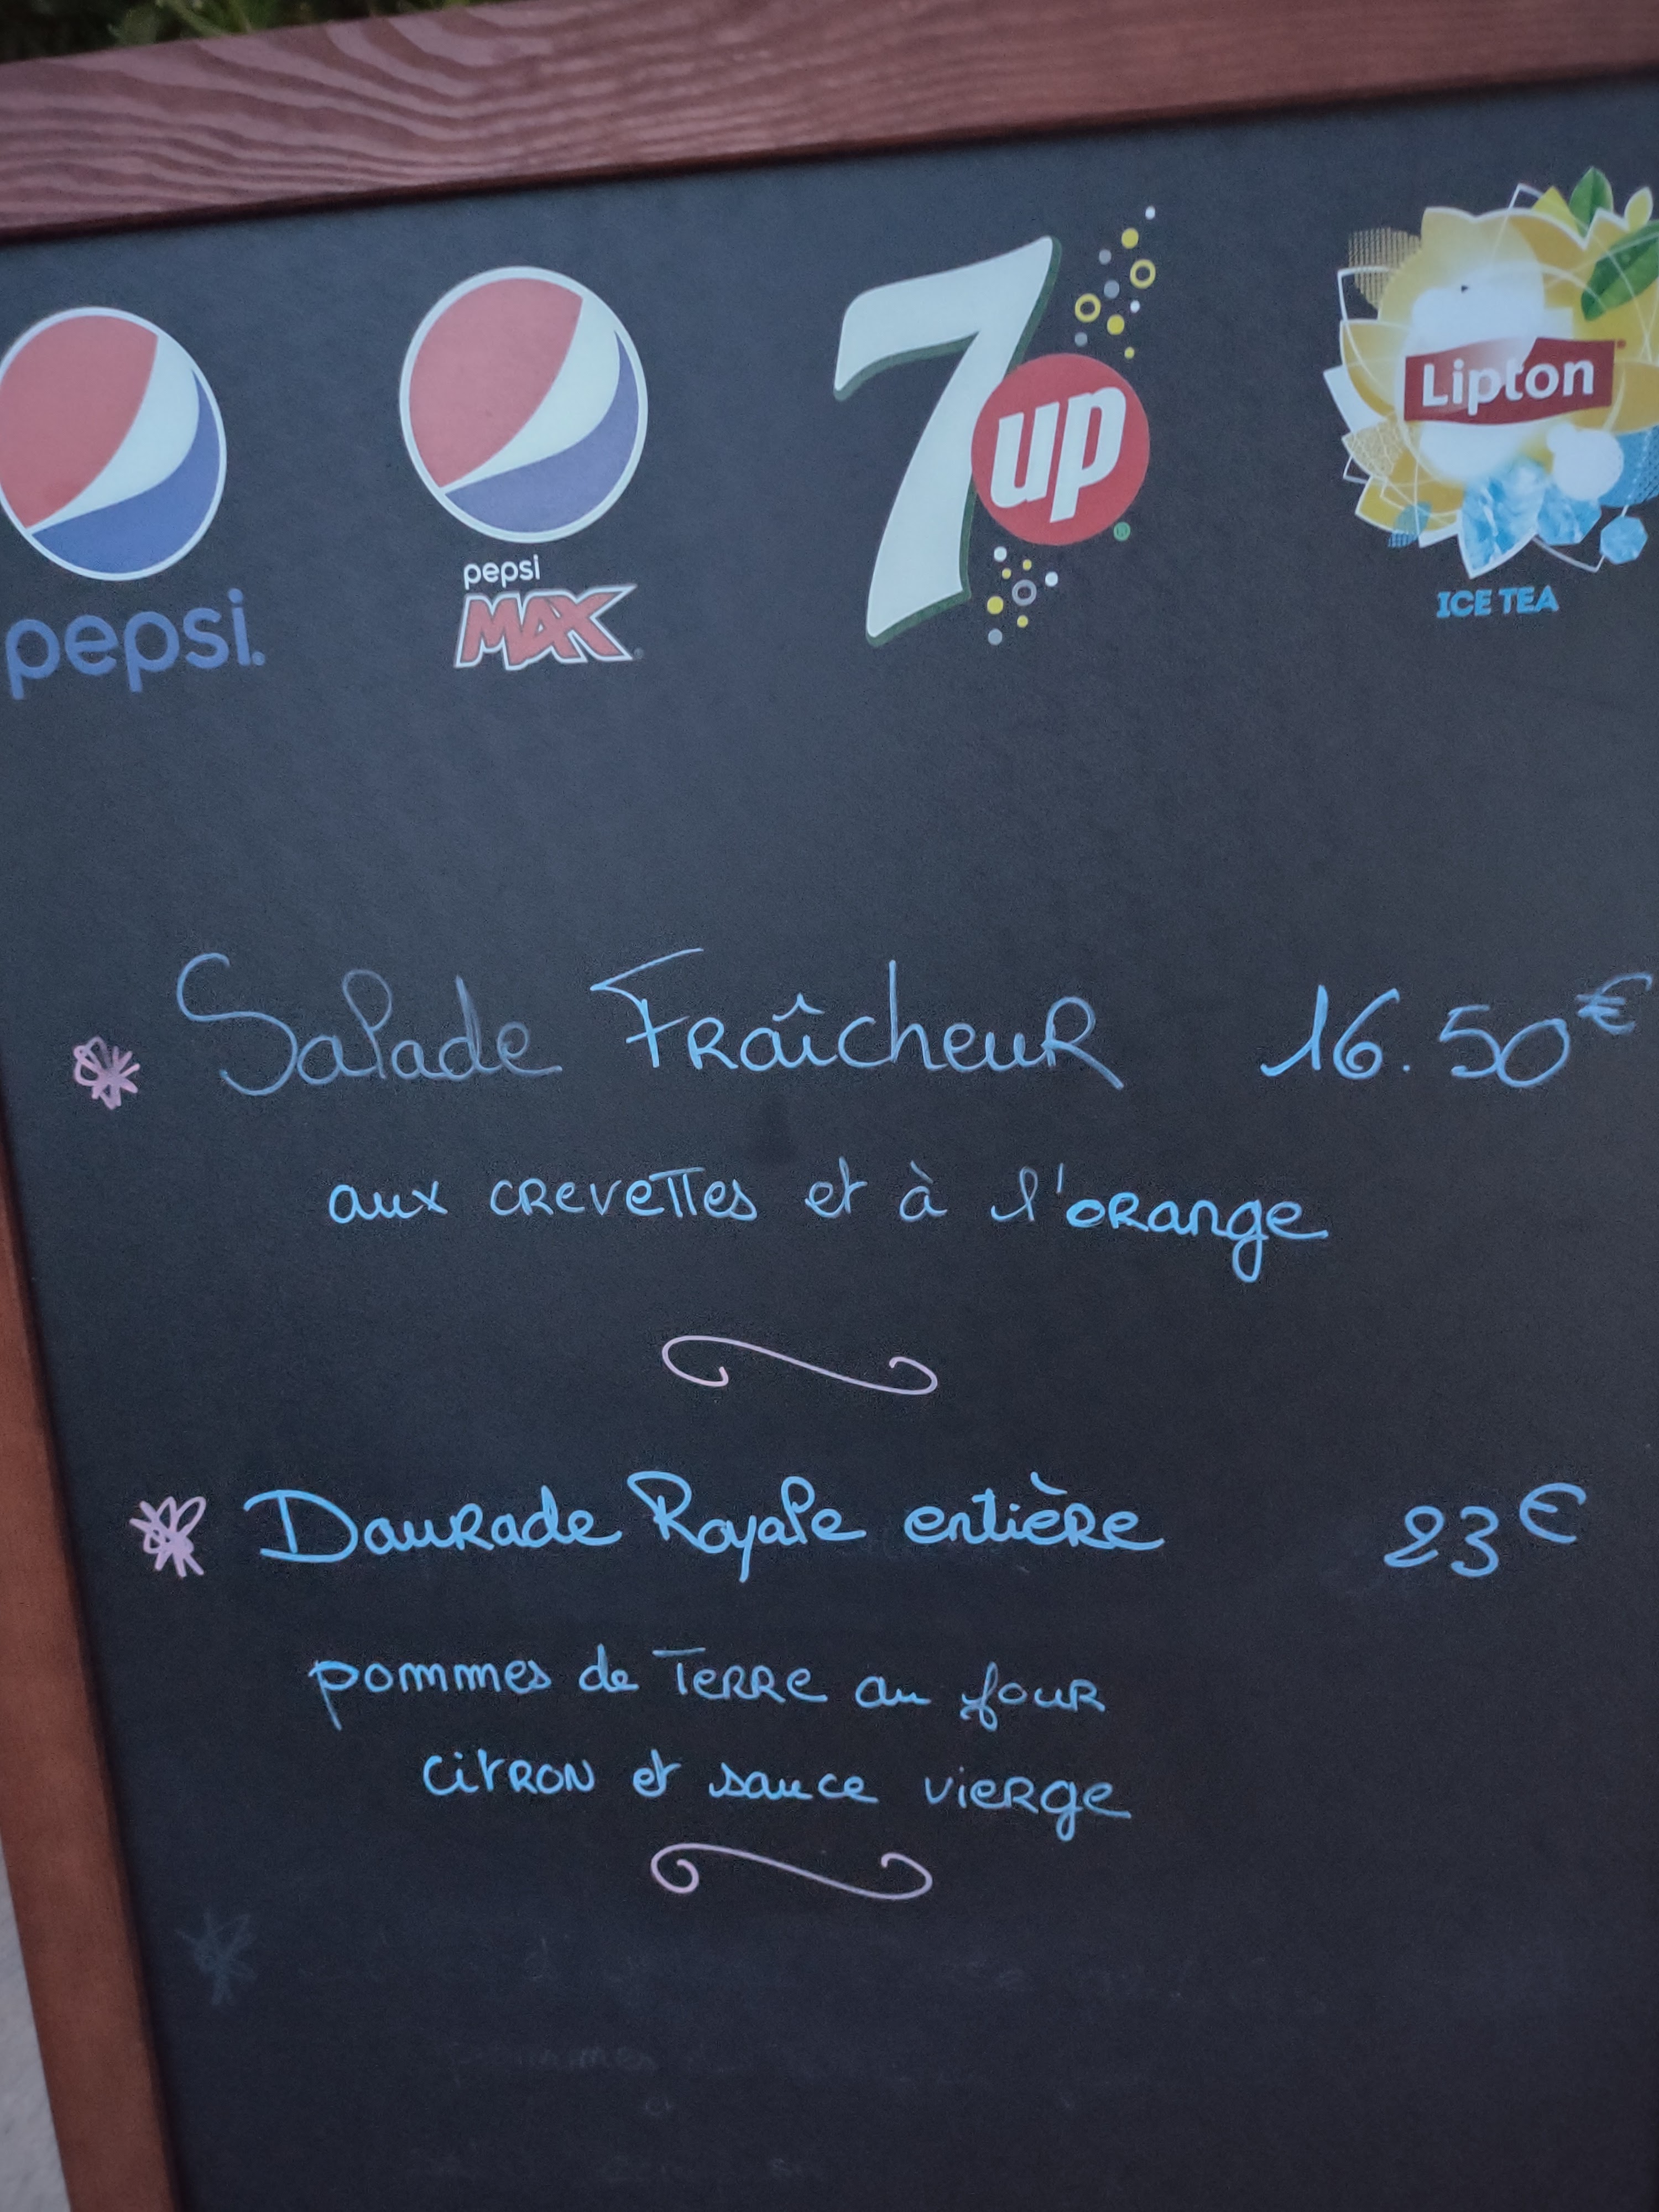 pepsi.
pepsi
MAX
7up
Lipton
ICE TEA
Salade Fraîcheur 16.50€
aux crevettes et à l'orange
Daurade Royale entière 23€
pommes de terre au four
citron et sauce vierge